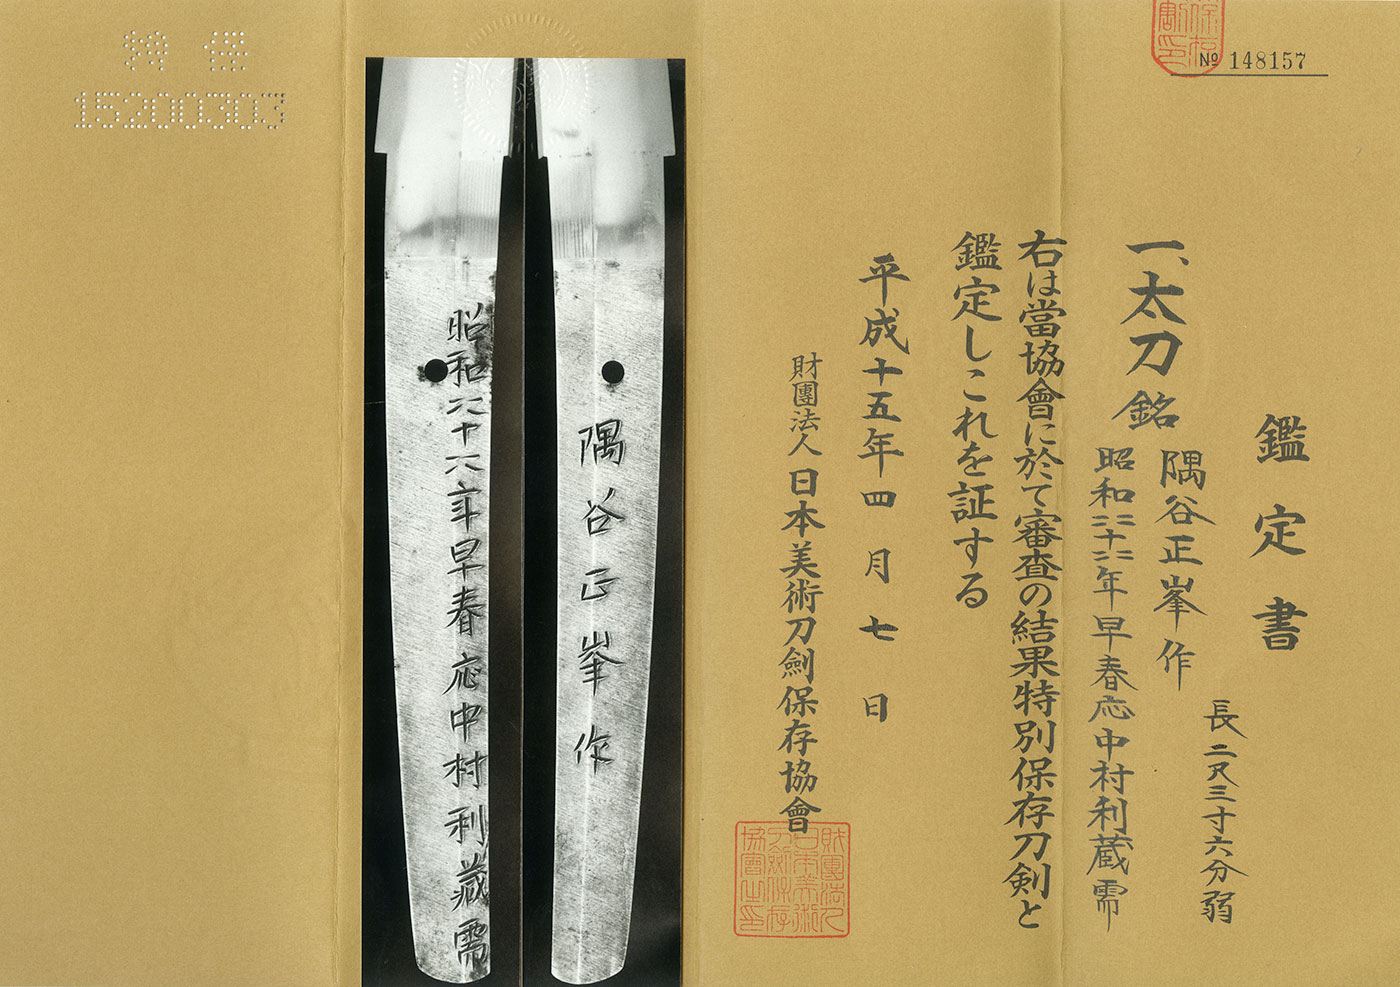 № 148157
鑑定書
一、太刀 銘
隅谷正峯作
昭和二二十六年早春応中村利蔵需
長二尺三寸六分弱
右は當協會に於て審査の結果特別保存刀剣と
鑑定しこれを証する
平成十五年四月七日
財團法人日本美術刀劍保存協會
財團法人
日本美術
刀劍保存
協會之印
隅谷正峯作
昭和二二十六年早春応中村利蔵需
15200303